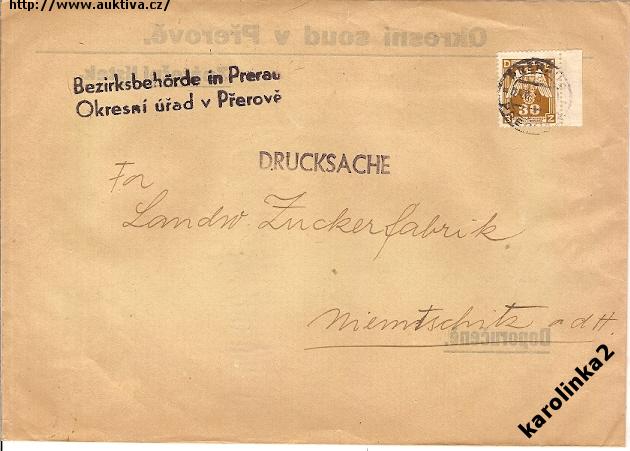 http://www.auktiva.cz/
Okresní soud v Přerově.
Bezirksbehörde in Prerau
Okresní úřad v Přerově
30
DRUCKSACHE
Fa
Landw Zuckerfabrik
Niemtschitz a d H.
Doporučeně.
karolinka2